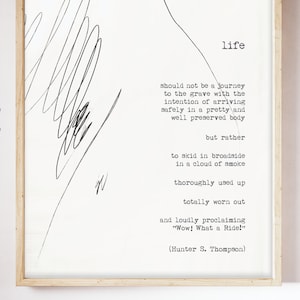 life
should not be a journey
to the grave with the
intention of arriving
safely in a pretty and
well preserved body
but rather
to skid in broadside
in a cloud of smoke
thoroughly used up
totally worn out
and loudly proclaiming
"Wow! What a Ride!"
(Hunter S. Thompson)